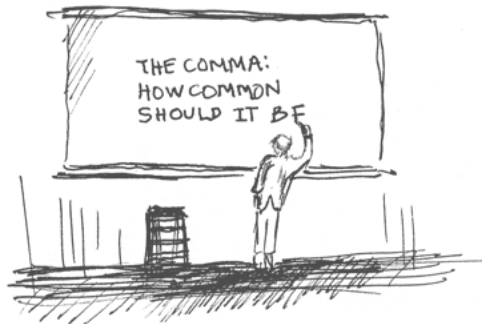 THE COMMA:
HOW COMMON
SHOULD IT BE